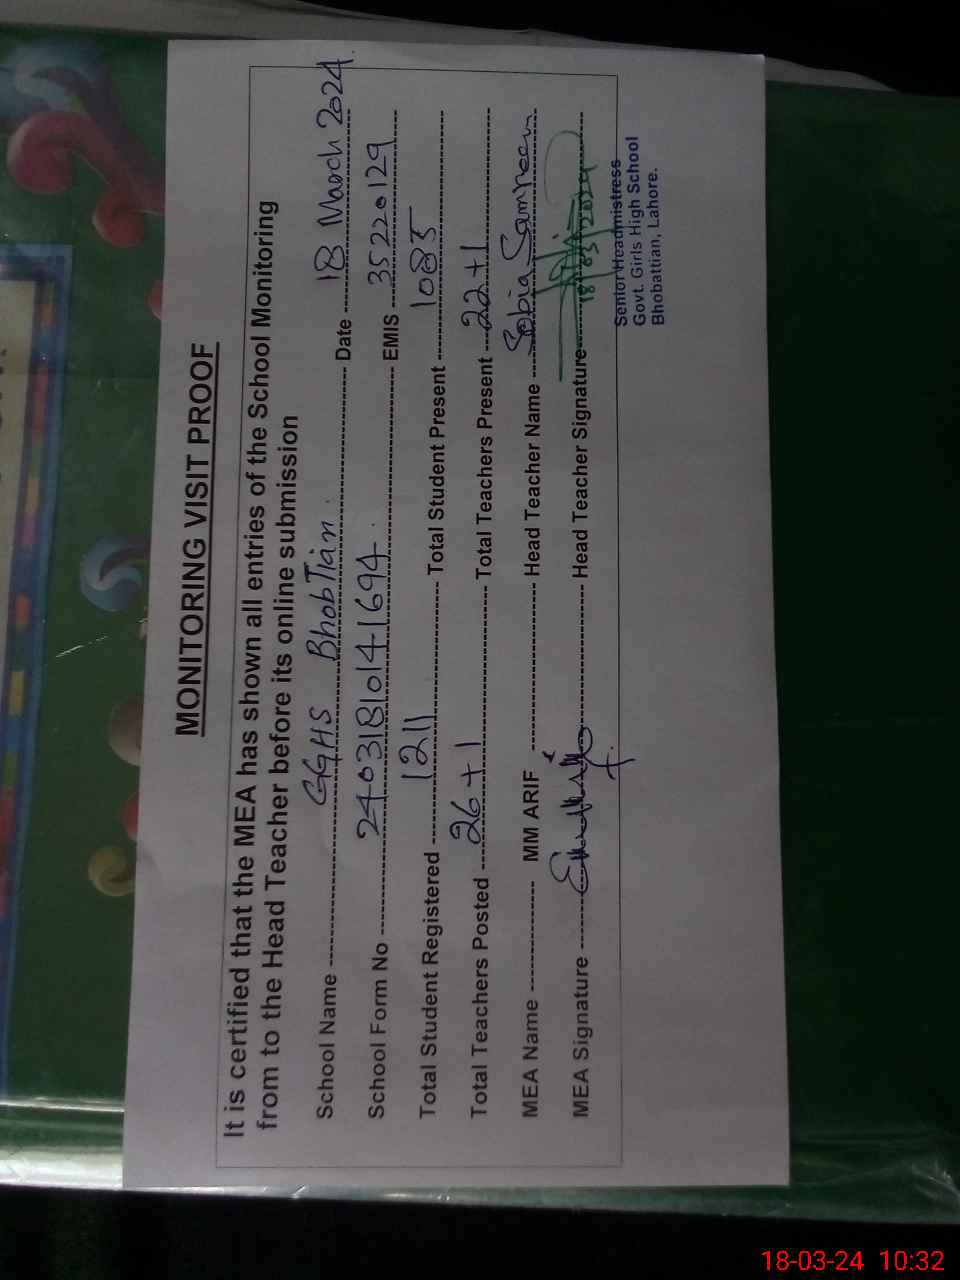 MONITORING VISIT PROOF
It is certified that the MEA has shown all entries of the School Monitoring
from to the Head Teacher before its online submission
School Name GGHS BhobTian. Date 18 March 2024.
School Form No 24031810141694. EMIS 35220129
Total Student Registered 1211 Total Student Present 1085
Total Teachers Posted 26+1 Total Teachers Present 22+1
MEA Name MM ARIF Head Teacher Name Sobia Samreen
MEA Signature Head Teacher Signature
18/03/2024
Senior Headmistress
Govt. Girls High School
Bhobattian, Lahore.
18-03-24 10:32